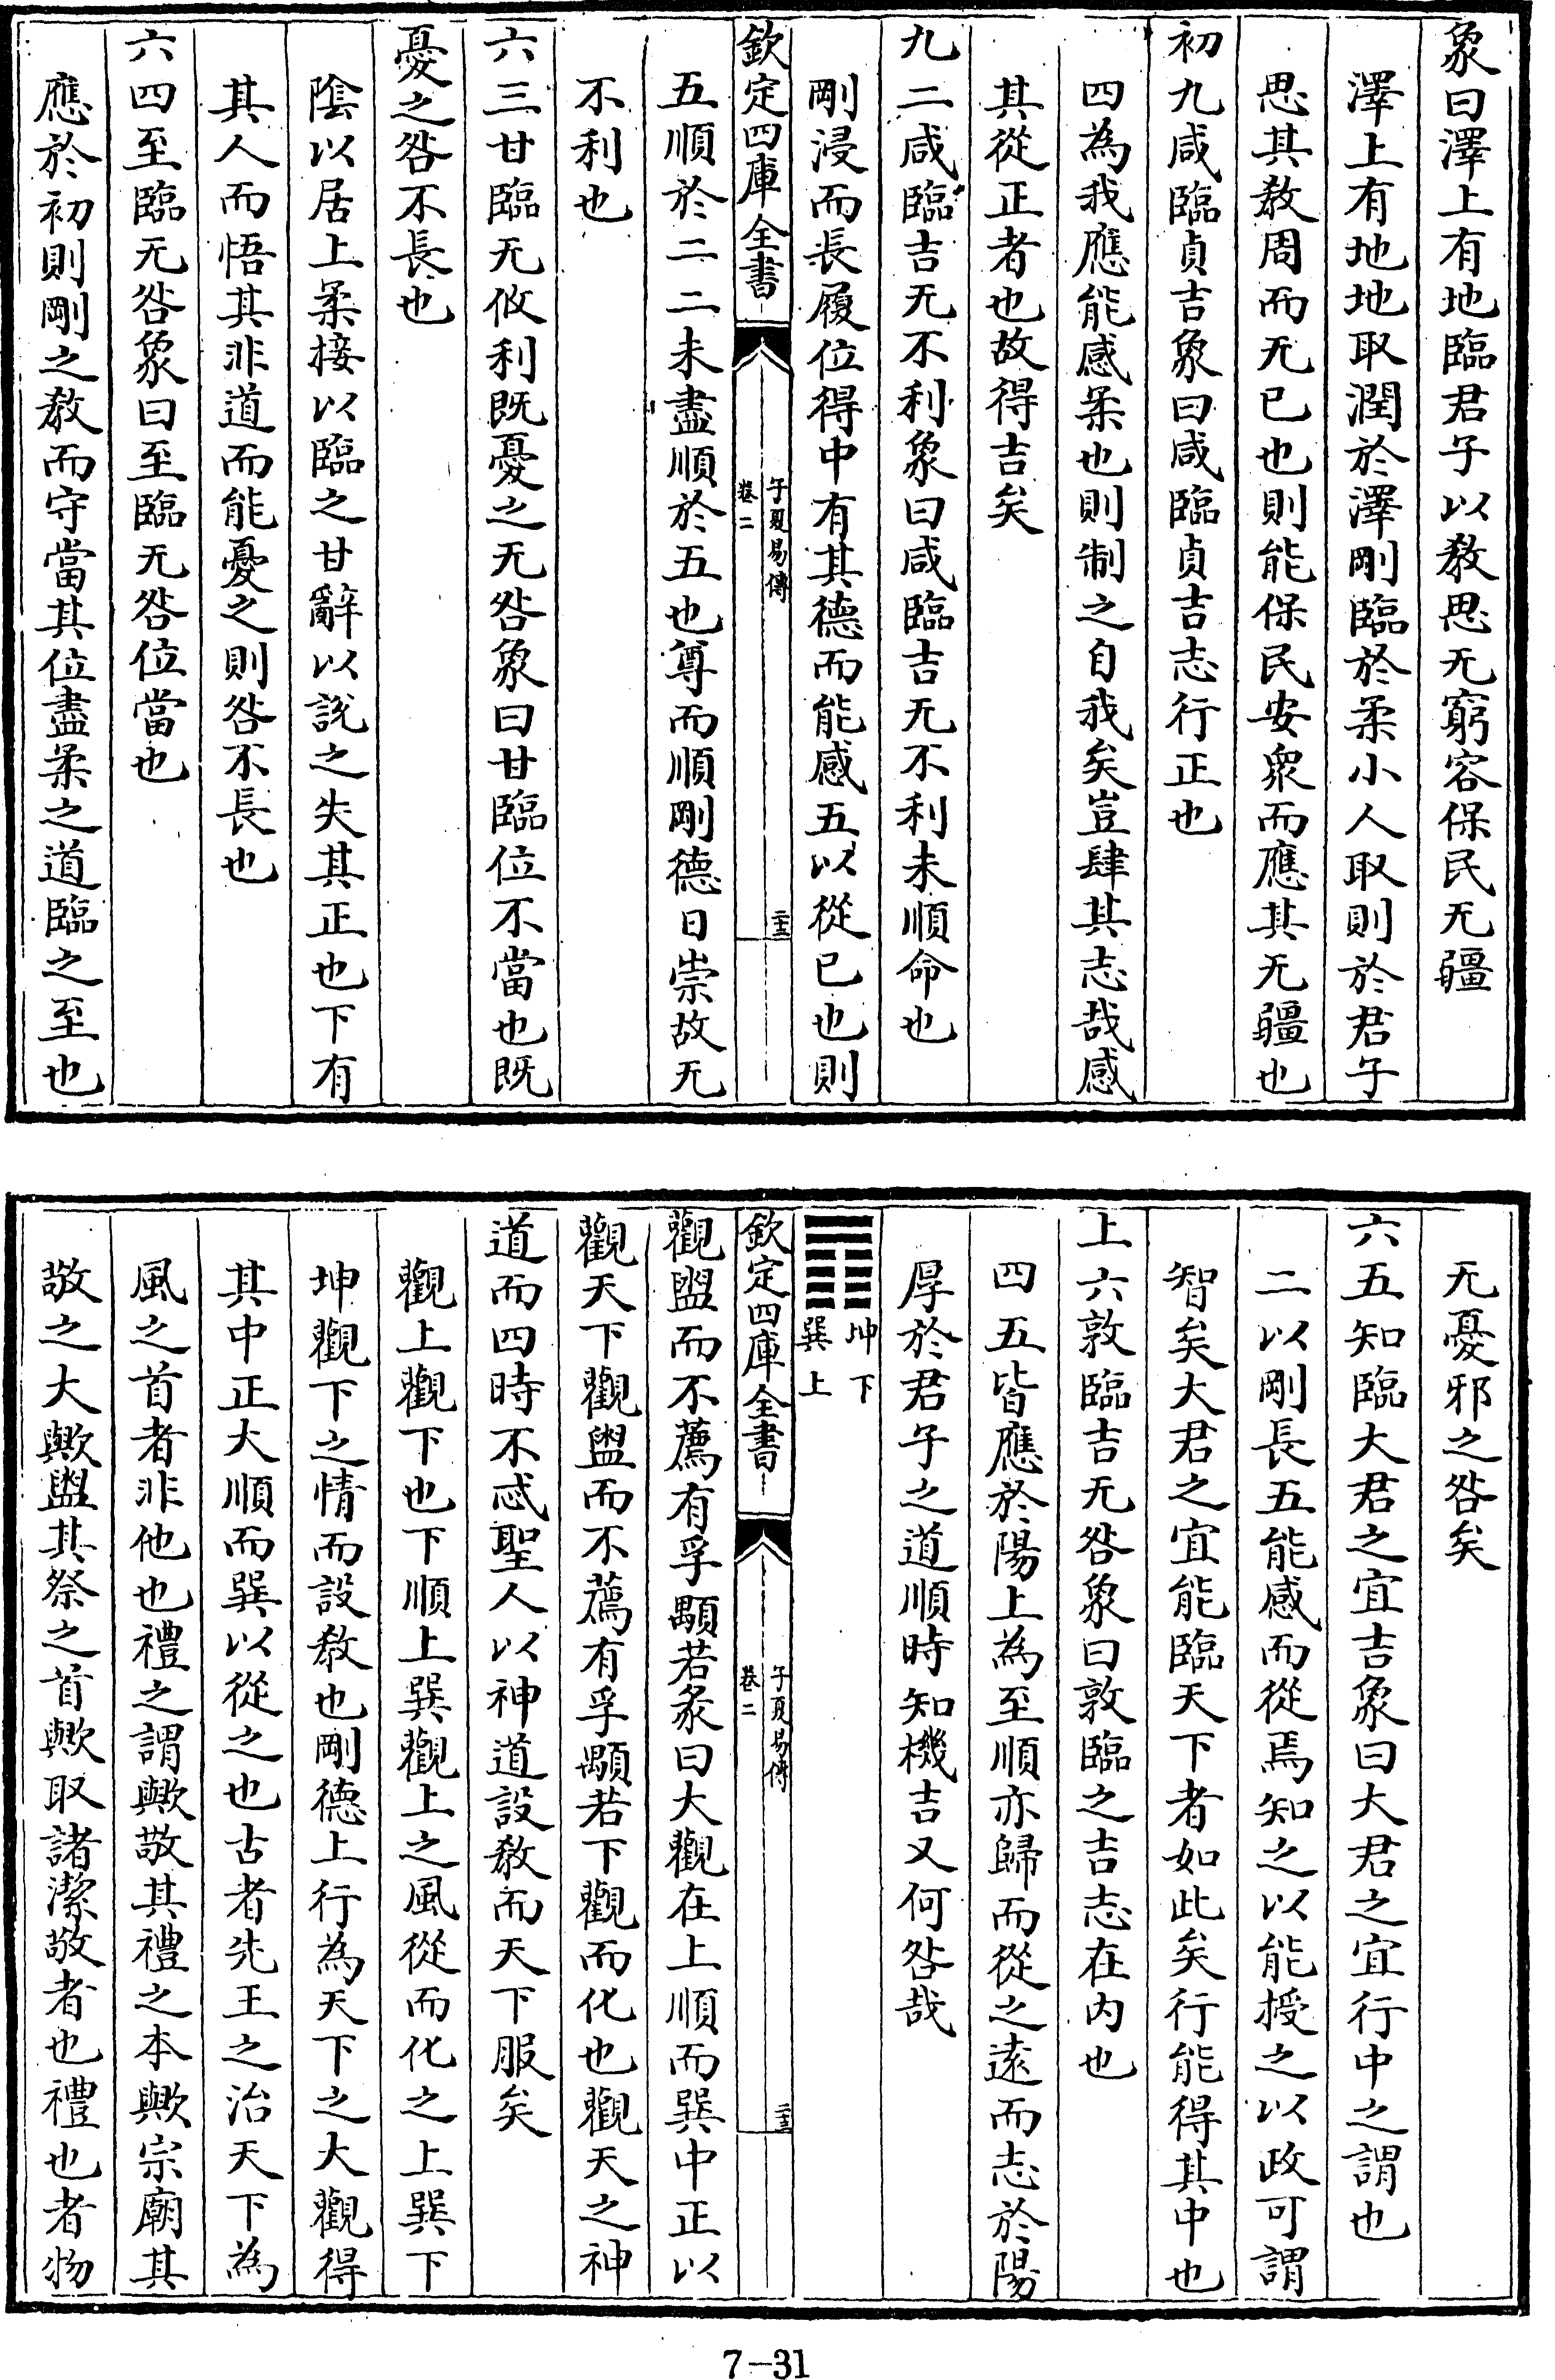 象曰澤上有地臨君子以教思无窮容保民无疆
澤上有地地取潤於澤剛臨於柔小人取則於君子
思其教周而无已也則能保民安衆而應其无疆也
初九咸臨貞吉象曰咸臨貞吉志行正也
四為我應能感柔也則制之自我矣豈肆其志哉感
其從正者也故得吉矣
九二咸臨吉无不利象曰咸臨吉无不利未順命也
剛浸而長履位得中有其德而能感五以從已也則
欽定四庫全書
子夏易傳
卷二
五順於二二未盡順於五也尊而順剛德日崇故无
不利也
六三甘臨无攸利既憂之无咎象曰甘臨位不當也既
憂之咎不長也
陰以居上柔接以臨之甘辭以說之失其正也下有
其人而悟其非道而能憂之則咎不長也
六四至臨无咎象曰至臨无咎位當也
應於初則剛之教而守當其位盡柔之道臨之至也
无憂邪之咎矣
六五知臨大君之宜吉象曰大君之宜行中之謂也
二以剛長五能感而從焉知之以能授之以政可謂
智矣大君之宜能臨天下者如此矣行能得其中也
上六敦臨吉无咎象曰敦臨之吉志在内也
四五皆應於陽上為至順亦歸而從之遠而志於陽
厚於君子之道順時知機吉又何咎哉
坤下
巽上
欽定四庫全書
子夏易傳
卷二
觀盥而不薦有孚顒若彖曰大觀在上順而巽中正以
觀天下觀盥而不薦有孚顒若下觀而化也觀天之神
道而四時不忒聖人以神道設教而天下服矣
觀上觀下也下順上巽觀上之風從而化之上巽下
坤觀下之情而設教也剛德上行為天下之大觀得
其中正大順而巽以從之也古者先王之治天下為
風之首者非他也禮之謂歟敬其禮之本歟宗廟其
敬之大歟盥其祭之首歟取諸潔敬者也禮也者物
7-31